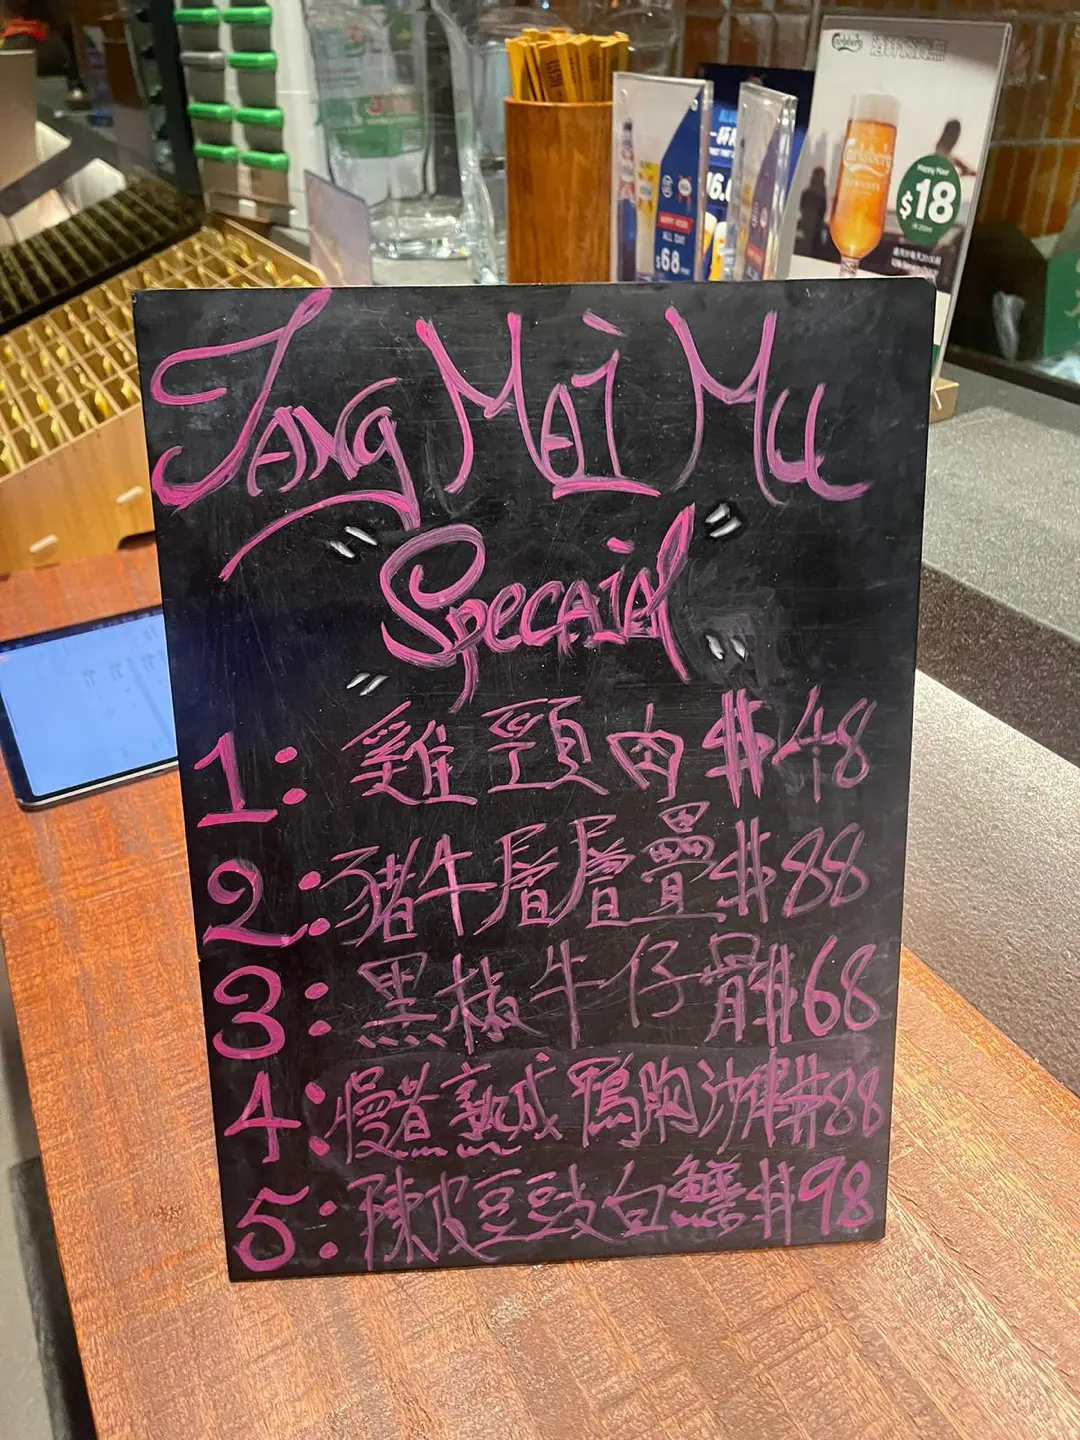 Carlsberg
Carlsberg
Happy Hour
$18
HAPPY HOUR
ALL DAY
$68
Tang Mai Mu
"Specaial"
1: 雞頸肉 $48
2: 豬牛層層疊 $88
3: 黑椒牛仔骨 $68
4: 慢煮熟成鴨胸沙律 $88
5: 陳皮豆豉白鱔 $98